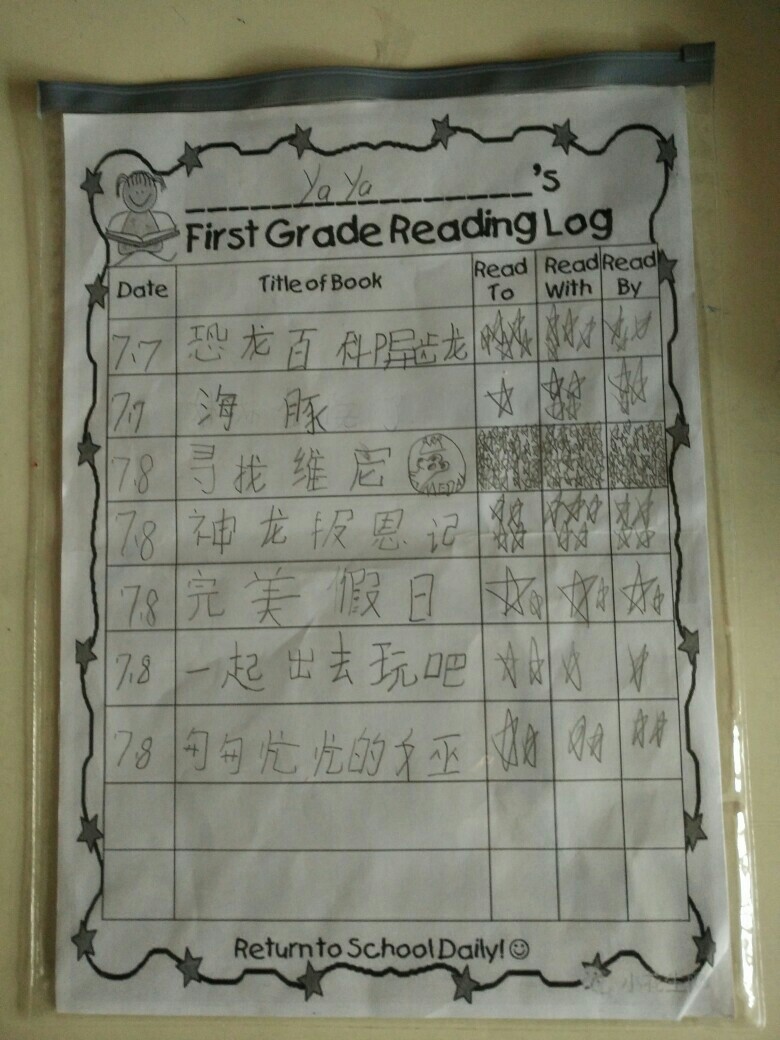 Ya Ya
's
First Grade Reading Log
Date Title of Book Read To Read With Read By
7.7 恐龙百科异齿龙
7.7 海豚
7.8 寻找维尼
7.8 神龙报恩记
7.8 完美假日
7.8 一起出去玩吧
7.8 的 巫
Return to School Daily!
小花生